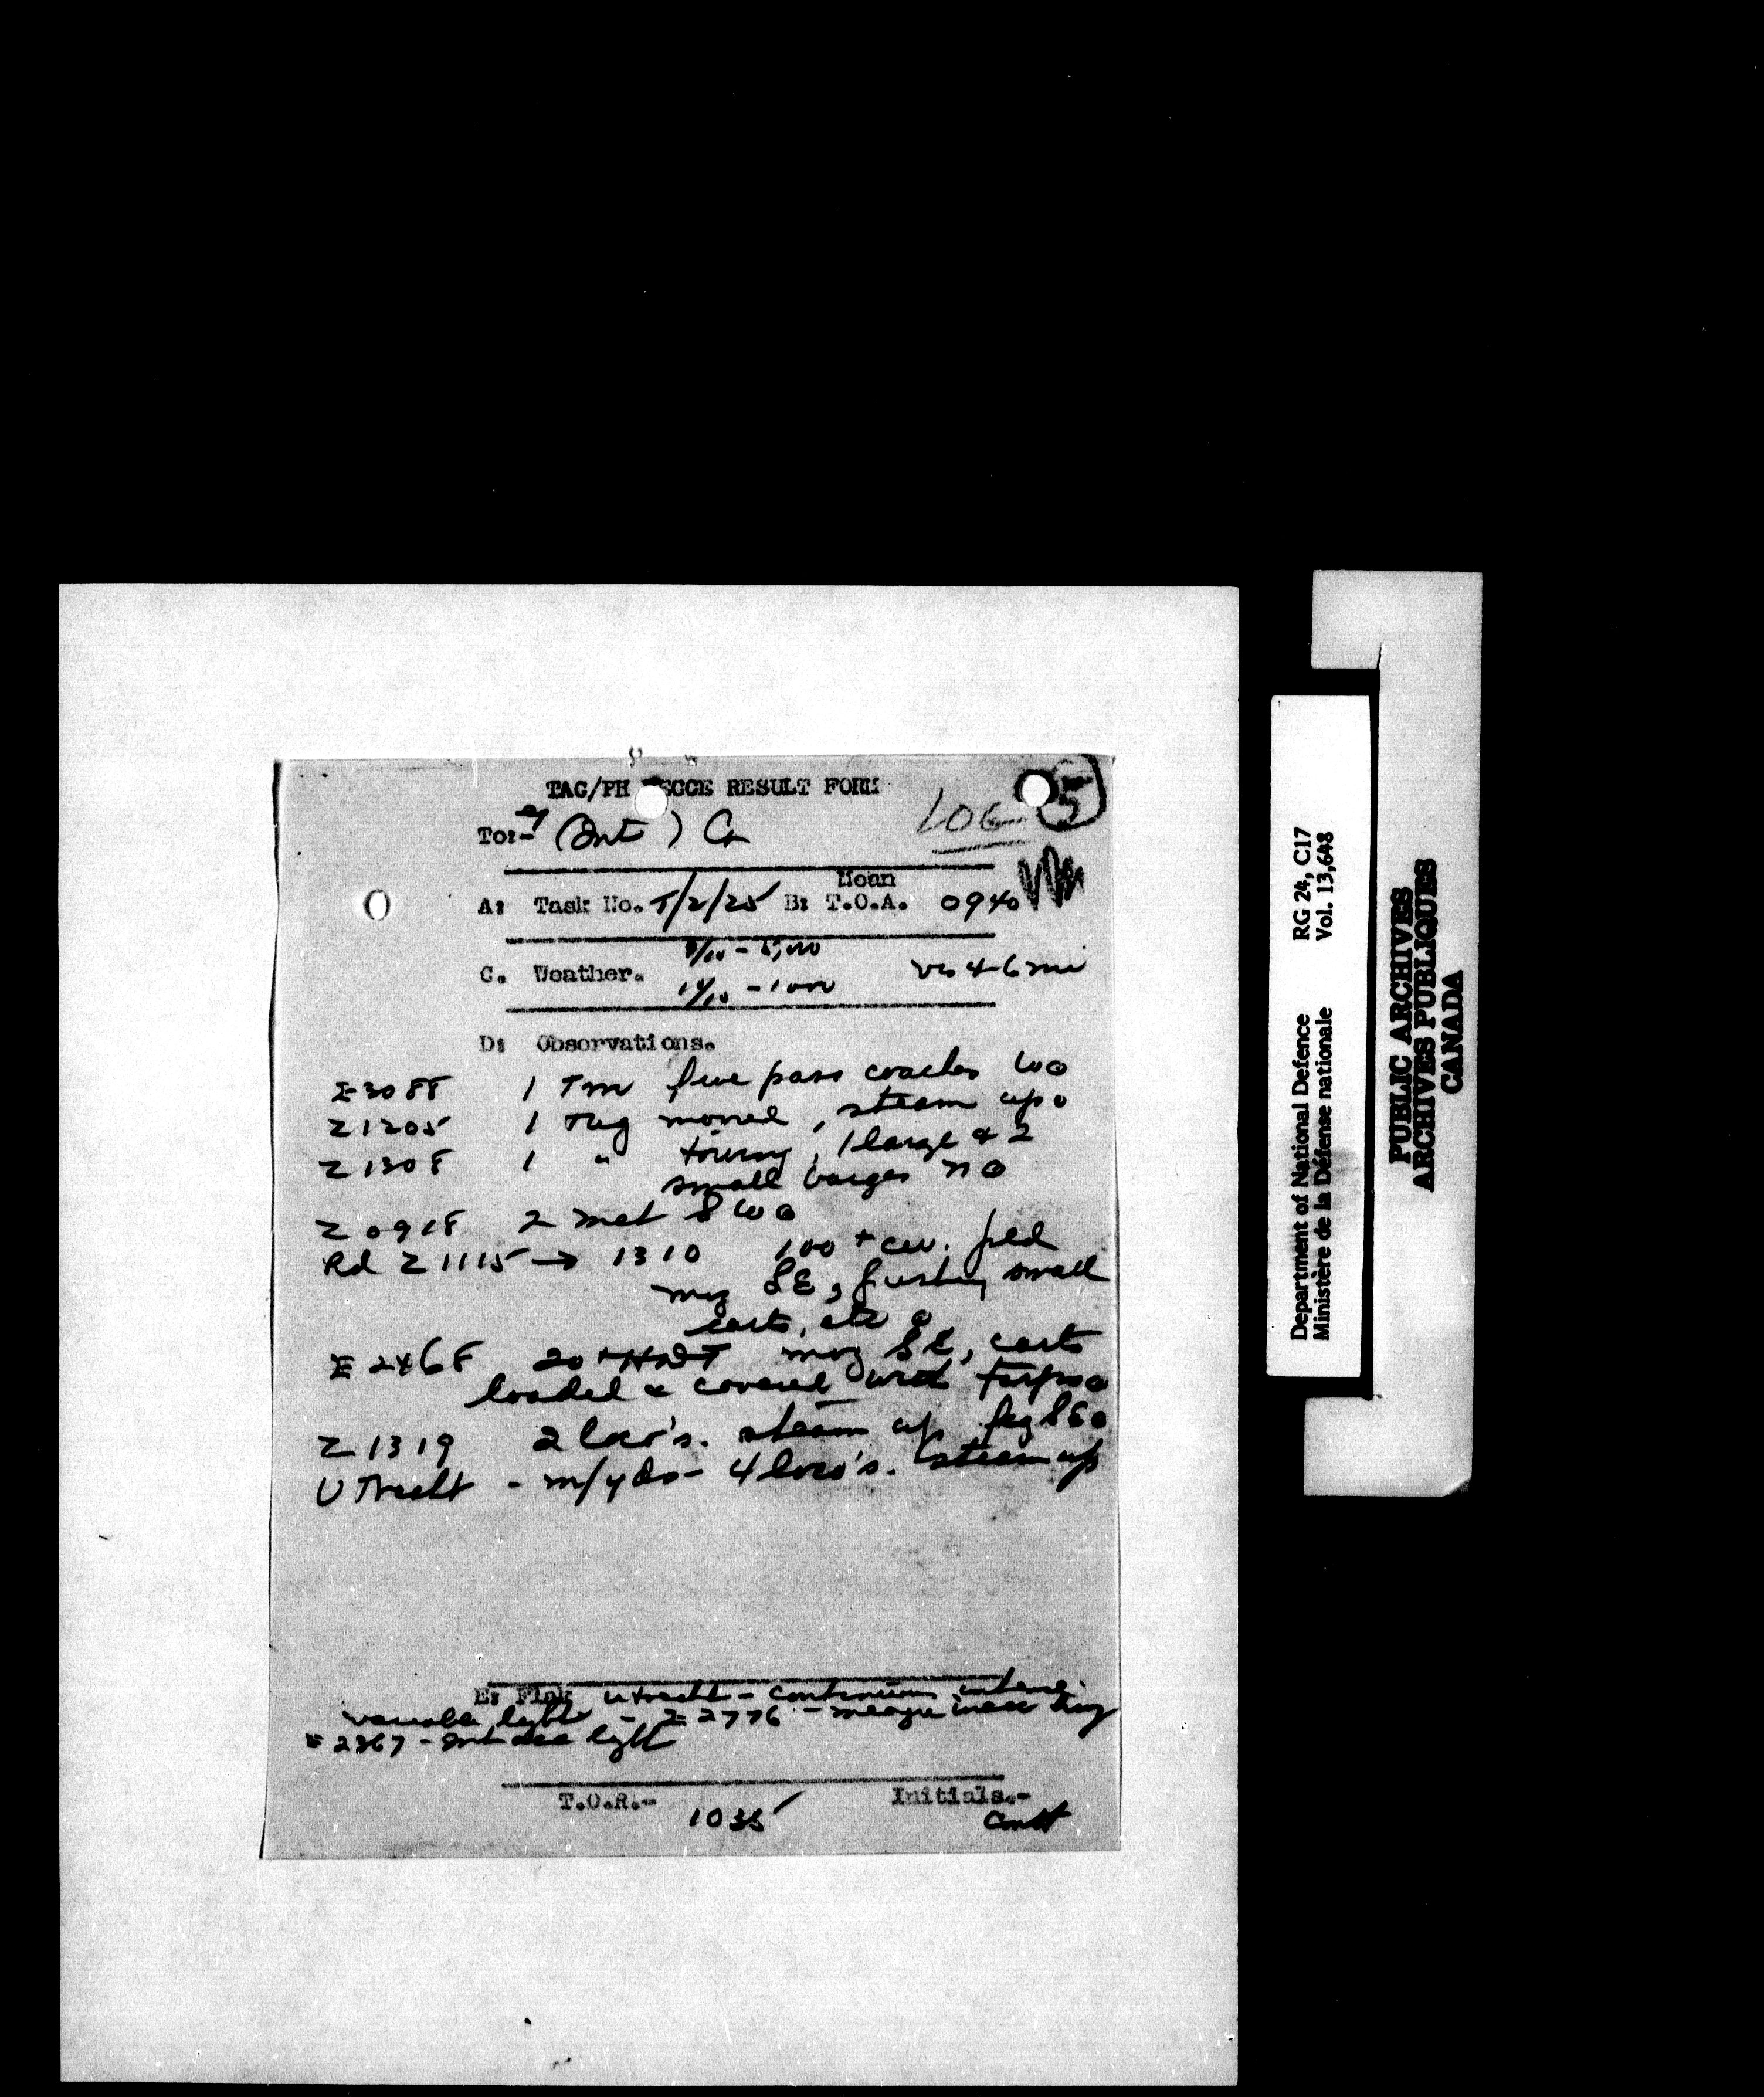 TAC/PH RECCE RESULT FORM
LOG
5
To:- (Int) Cn
A: Task No. T/2/25 B: Mean T.O.A. 0940
C. Weather. 9/10 - 5,000 vis 4-6 mi
10/10 - 1000
D: Observations.
E 3088 1 Trn five pass coaches W
Z 1205 1 Tug moved, steam up
Z 1308 1 " towing, 1 large & 2
small barges N
Z 0918 2 met SW
Rd Z 1115 → 1310 100 + civ. ped
mvg SE, pushing small
carts, etc
E 2468 20 + HDT mvg SE, carts
loaded & covered with tarps
Z 1319 2 loco's. steam up fcg SE
Utrecht - m/yds - 4 loco's. steam up
E: Flak Utrecht - continuous intense
variable light - E 2776 - meagre inacc hvy
E 2367 - int acc light
T.O.R.- 1035 Initials.-
Department of National Defence RG 24, C17
Ministère de la Défense nationale Vol. 13,648
PUBLIC ARCHIVES
ARCHIVES PUBLIQUES
CANADA